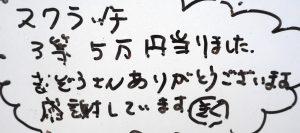 スクラッチ
3等 5万円当りました.
むぞうさんありがとうございます
感謝しています